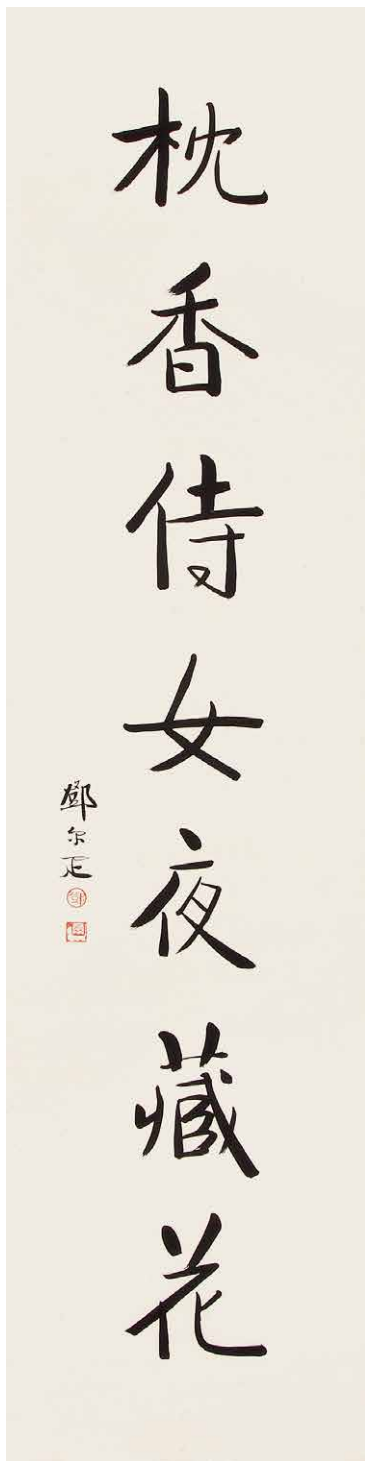 枕香侍女夜藏花
鄧尔疋